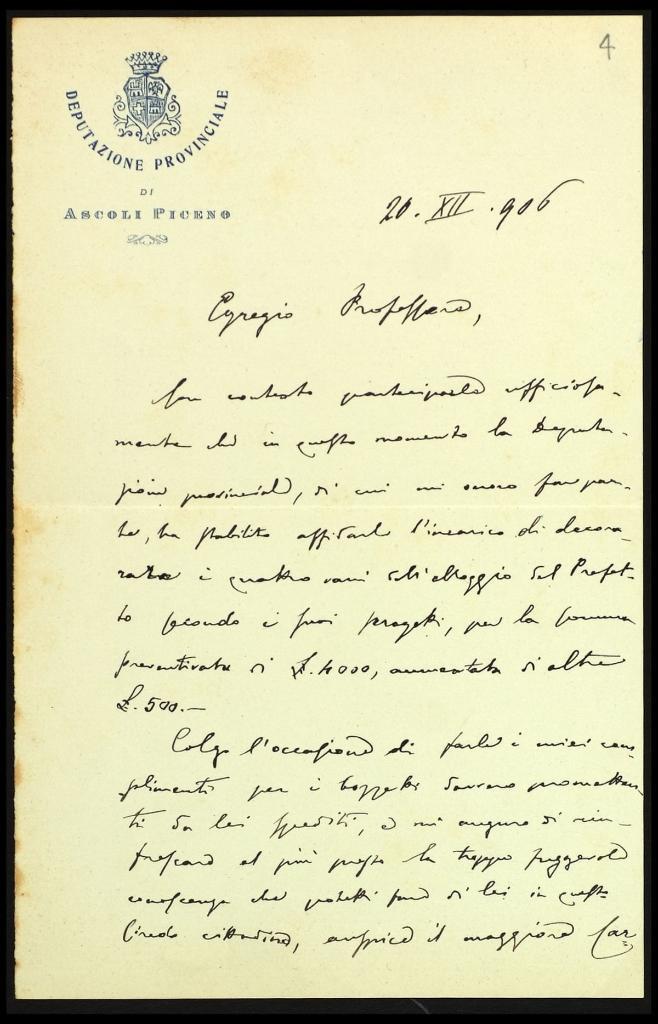 4
DEPUTAZIONE PROVINCIALE
DI
ASCOLI PICENO
20. XII. 906
Egregio Professore,
Son contento parteciparle ufficiosa-
mente che in questo momento la Deputa-
zione provinciale, di cui mi onoro far par-
te, ha stabilito affidarle l'incarico di decora-
rare i quattro vani dell'alloggio del Prefet-
to secondo i suoi progetti, per la somma
preventivata di £. 4000, aumentata di altre
£. 500.—
Colgo l'occasione di farle i miei com-
plimenti per i bozzetti davvero prometten-
ti da lei spediti, e mi auguro di rin-
frescare al più presto la troppo fuggevole
conoscenza che potetti fare di lei in questo
Circolo cittadino, auspice il maggiore Car=